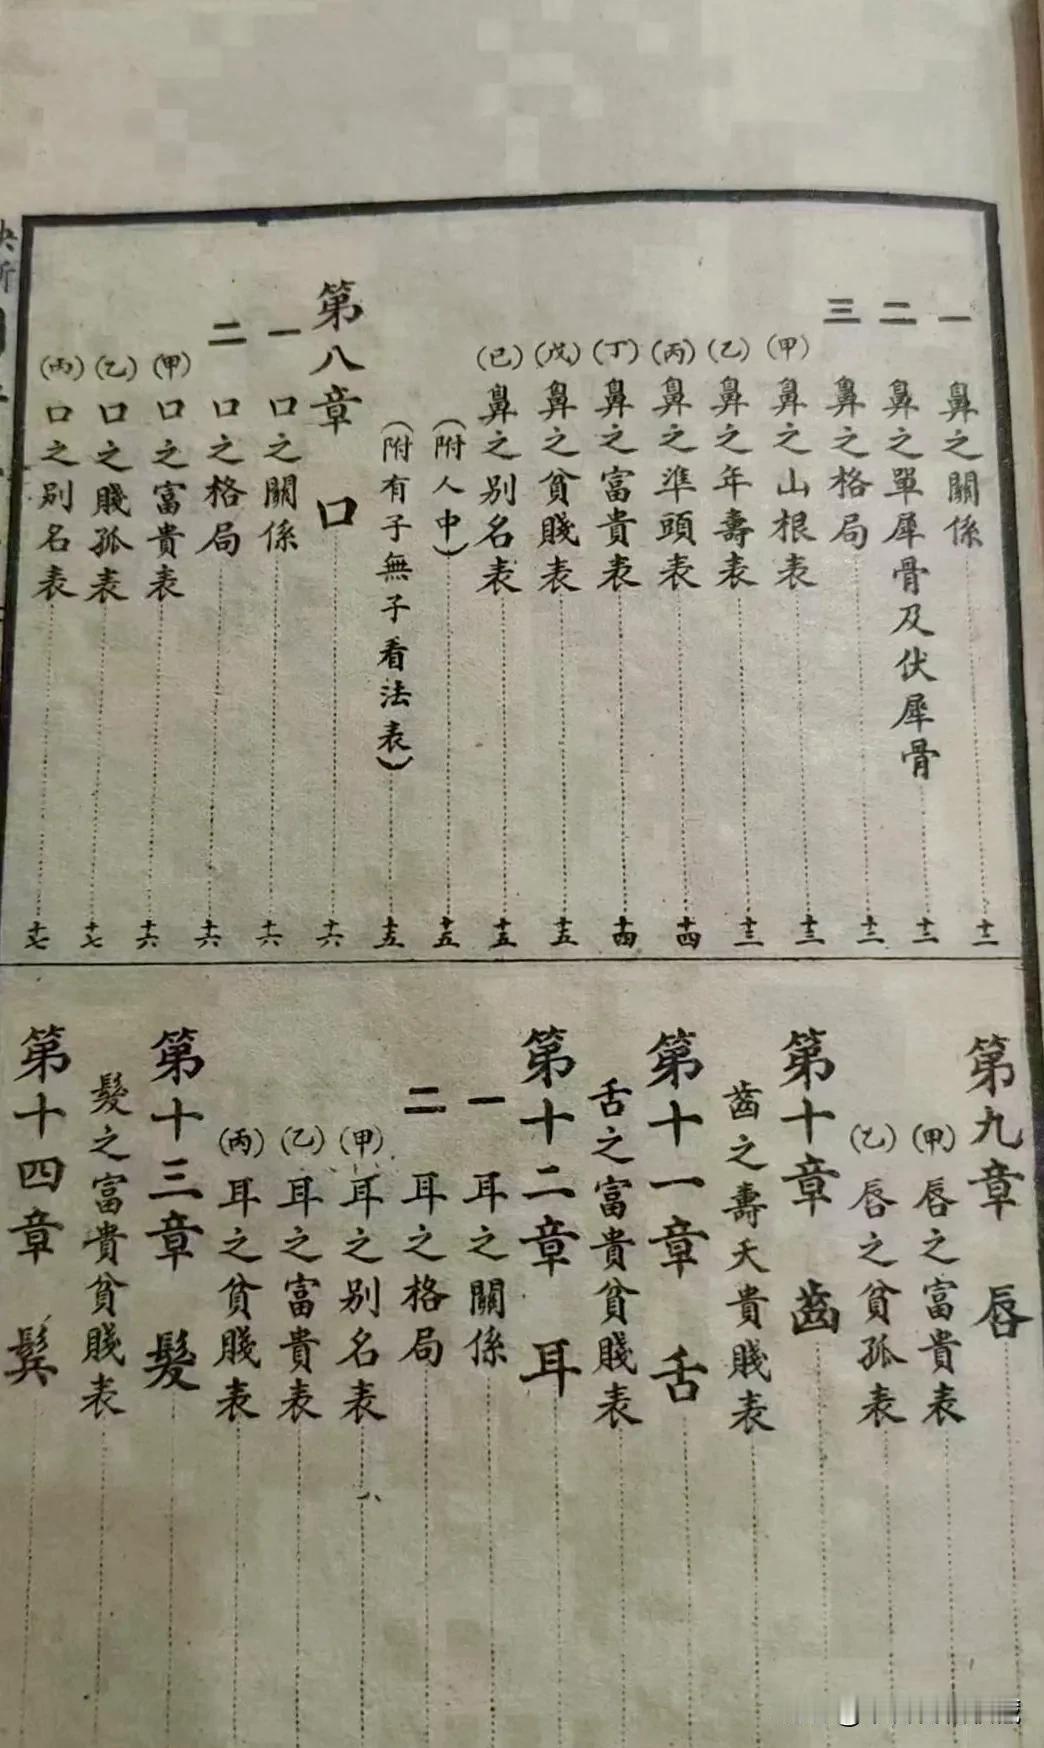 一 鼻之關係 十二
二 鼻之單犀骨及伏犀骨 十二
三 鼻之格局 十二
(甲) 鼻之山根表 十三
(乙) 鼻之年壽表 十三
(丙) 鼻之準頭表 十四
(丁) 鼻之富貴表 十四
(戊) 鼻之貧賤表 十五
(已) 鼻之别名表 十五
(附人中) 十五
(附有子無子看法表) 十五
第八章 口 十六
一 口之關係 十六
二 口之格局 十六
(甲) 口之富貴表 十六
(乙) 口之賤孤表 十七
(丙) 口之别名表 十七
第九章 唇
(甲) 唇之富貴表
(乙) 唇之貧孤表
第十章 齒
齒之壽夭貴賤表
第十一章 舌
舌之富貴貧賤表
第十二章 耳
一 耳之關係
二 耳之格局
(甲) 耳之别名表
(乙) 耳之富貴表
(丙) 耳之貧賤表
第十三章 髮
髮之富貴貧賤表
第十四章 鬓